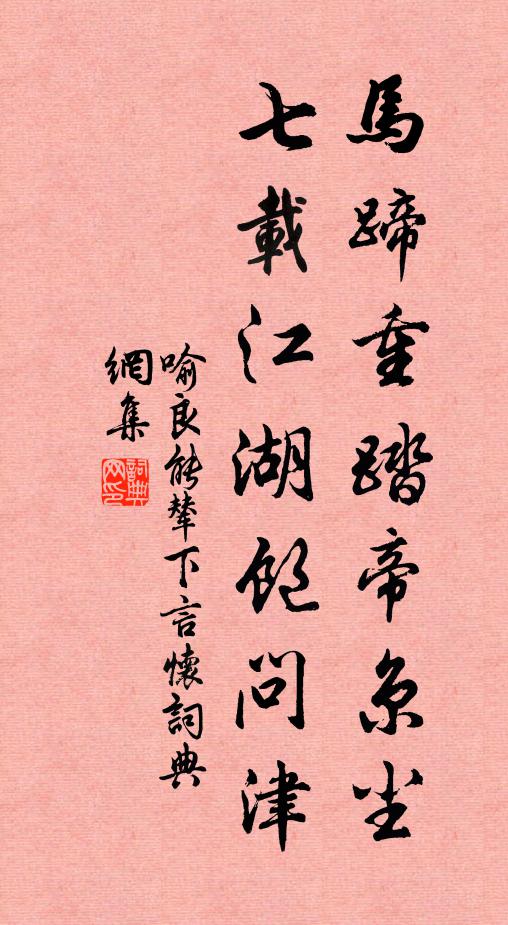 馬蹄重踏帝京塵
七載江湖飽問津
喻良能輦下言懷詞典
網集
詞典
网印